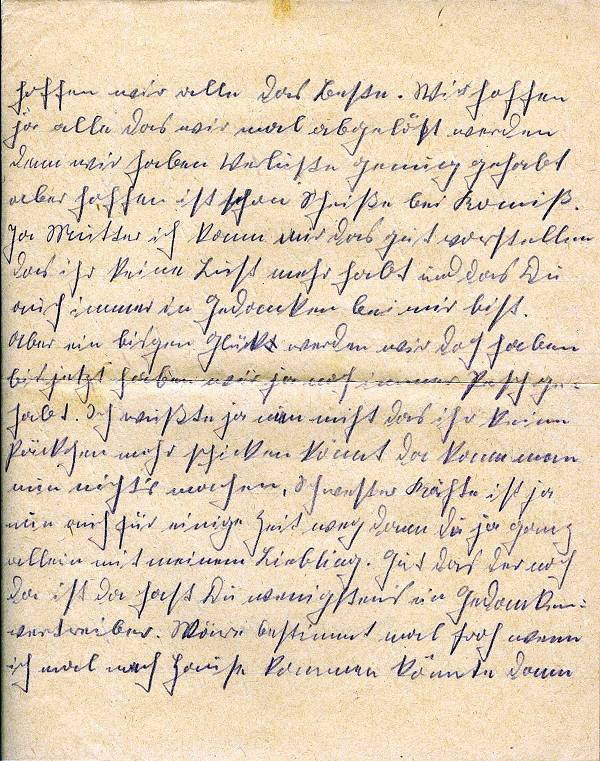 hoffen wir alle das Beste. Wir hoffen
ja alle das wir mal abgelöst werden
denn wir haben Verluste genug gehabt
aber hoffen ist schon Scheiße bei Komiß.
Ja Mutter ich kann mir das gut vorstellen
das ihr keine Lust mehr habt und das Du
auch immer in Gedanken bei mir bist.
Aber ein bisgen Glück werden wir doch haben
bis jetzt haben wir ja noch immer Pech ge-
habt. Ich wußte ja nun nicht das ihr keine
Päckchen mehr schicken könnt da kann man
nun nichts machen. Schwester Käthe ist ja
nun auch für einige Zeit weg dann du ja ganz
allein mit meinem Liebling. Gut das der noch
da ist da hast Du wenigstens ein Gedanken-
vertreiber. Wäre bestimmt mal froh wenn
ich mal nach Hause kommen könnte dann